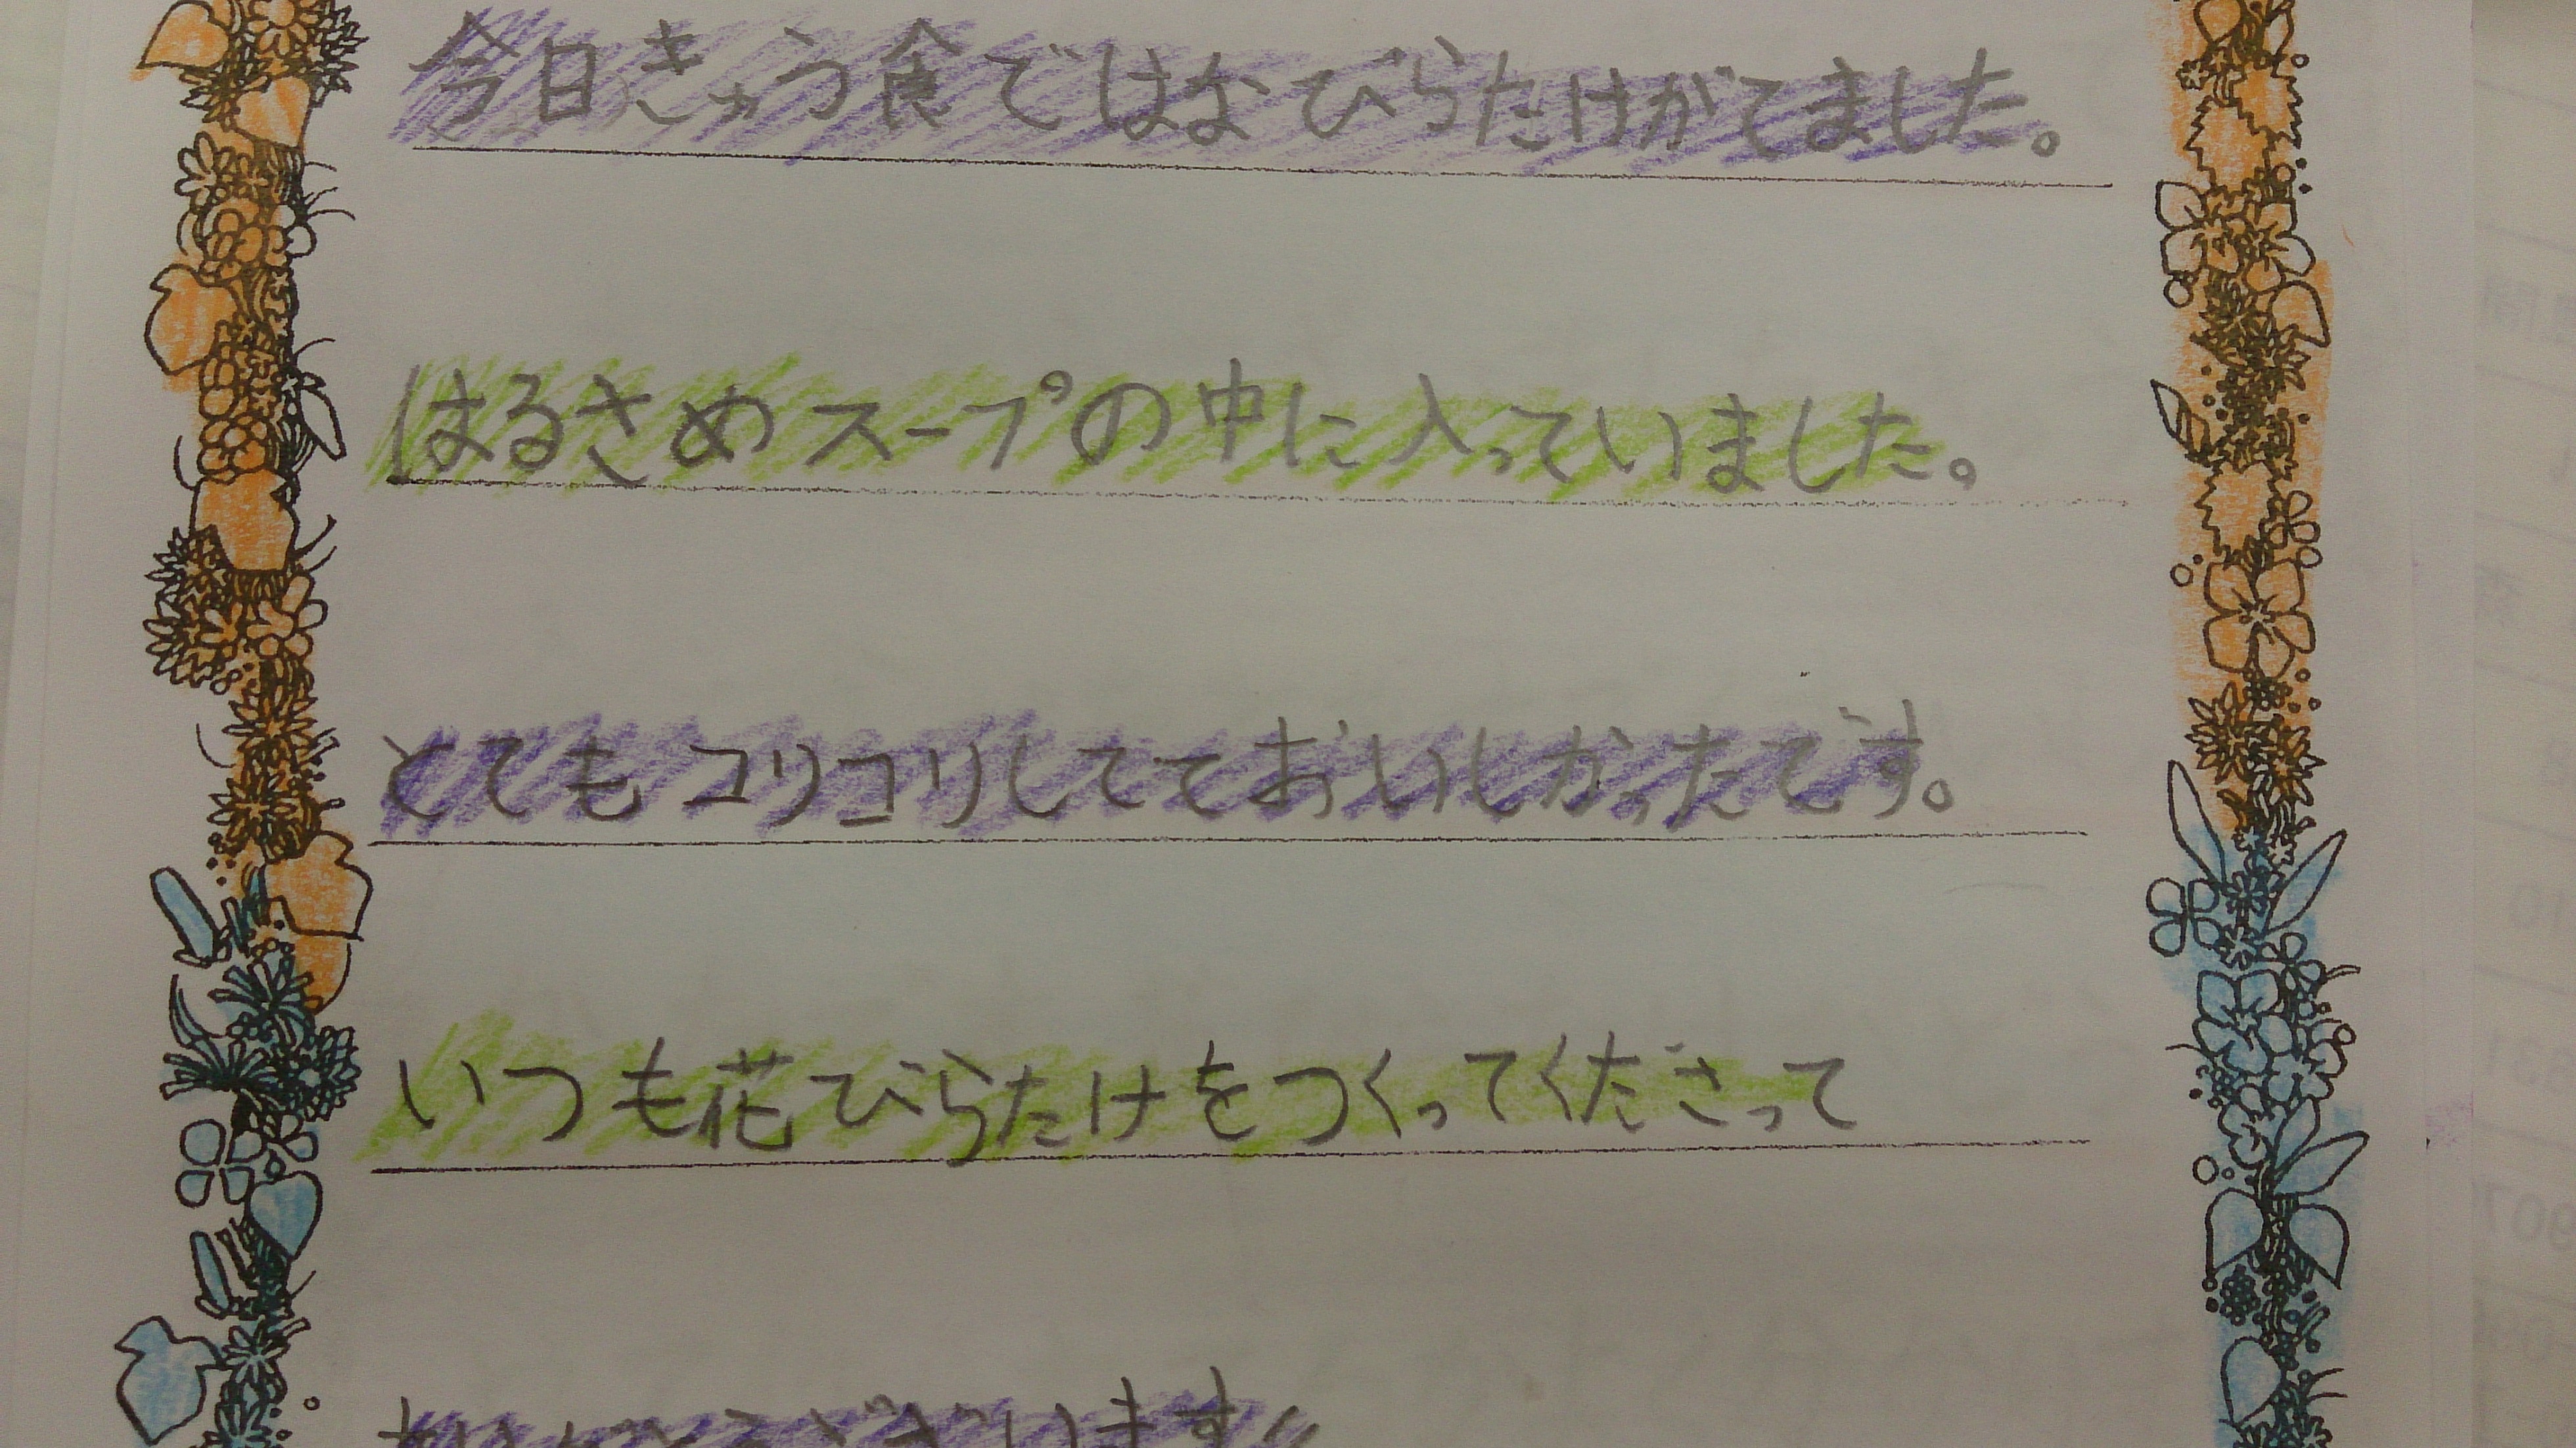 今日きゅう食ではなびらたけがてました。
はるさめスープの中に入っていました。
とてもコリコリしてておいしかったです。
いつも花びらたけをつくってくださって
ありがとうございます!!